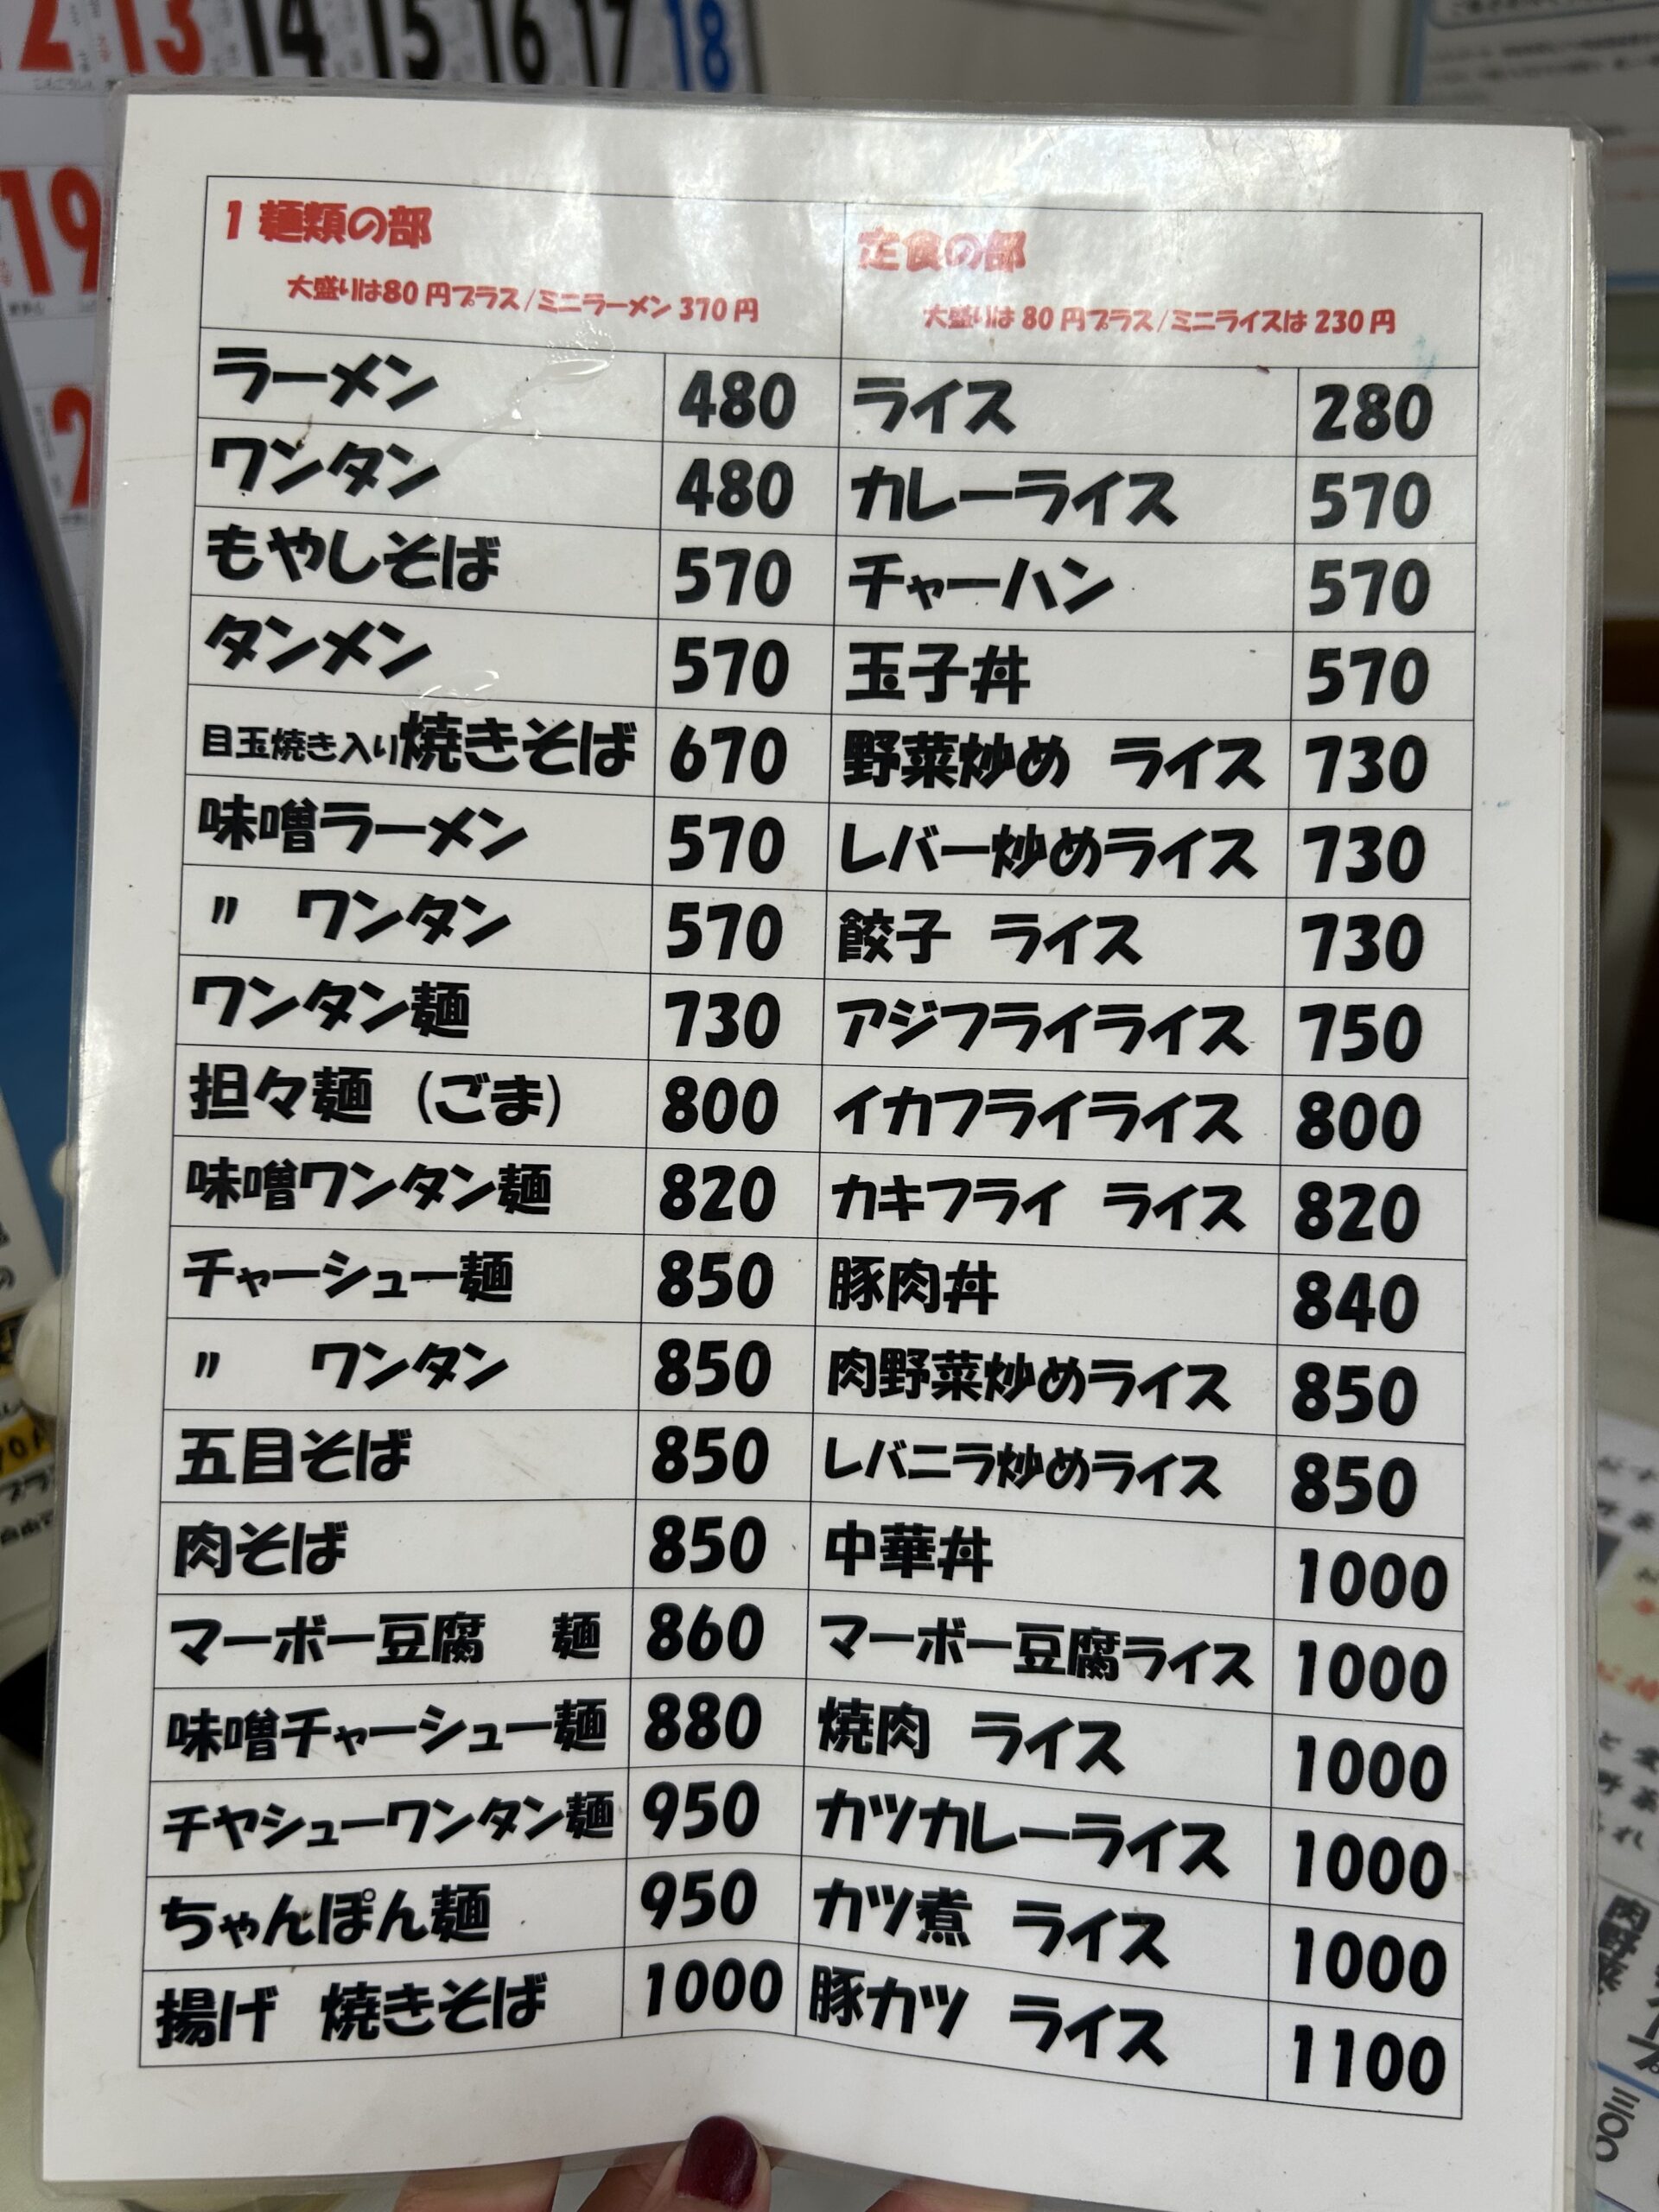 12 13 14 15 16 17 18
19
1 麺類の部
大盛りは80円プラス/ミニラーメン370円
ラーメン 480
ワンタン 480
もやしそば 570
タンメン 570
目玉焼き入り焼きそば 670
味噌ラーメン 570
〃 ワンタン 570
ワンタン麺 730
担々麺 (ごま) 800
味噌ワンタン麺 820
チャーシュー麺 850
〃 ワンタン 850
五目そば 850
肉そば 850
マーボー豆腐 麺 860
味噌チャーシュー麺 880
チヤシューワンタン麺 950
ちゃんぽん麺 950
揚げ 焼きそば 1000
定食の部
大盛りは80円プラス/ミニライスは230円
ライス 280
カレーライス 570
チャーハン 570
玉子丼 570
野菜炒め ライス 730
レバー炒めライス 730
餃子 ライス 730
アジフライライス 750
イカフライライス 800
カキフライ ライス 820
豚肉丼 840
肉野菜炒めライス 850
レバニラ炒めライス 850
中華丼 1000
マーボー豆腐ライス 1000
焼肉 ライス 1000
カツカレーライス 1000
カツ煮 ライス 1000
豚カツ ライス 1100